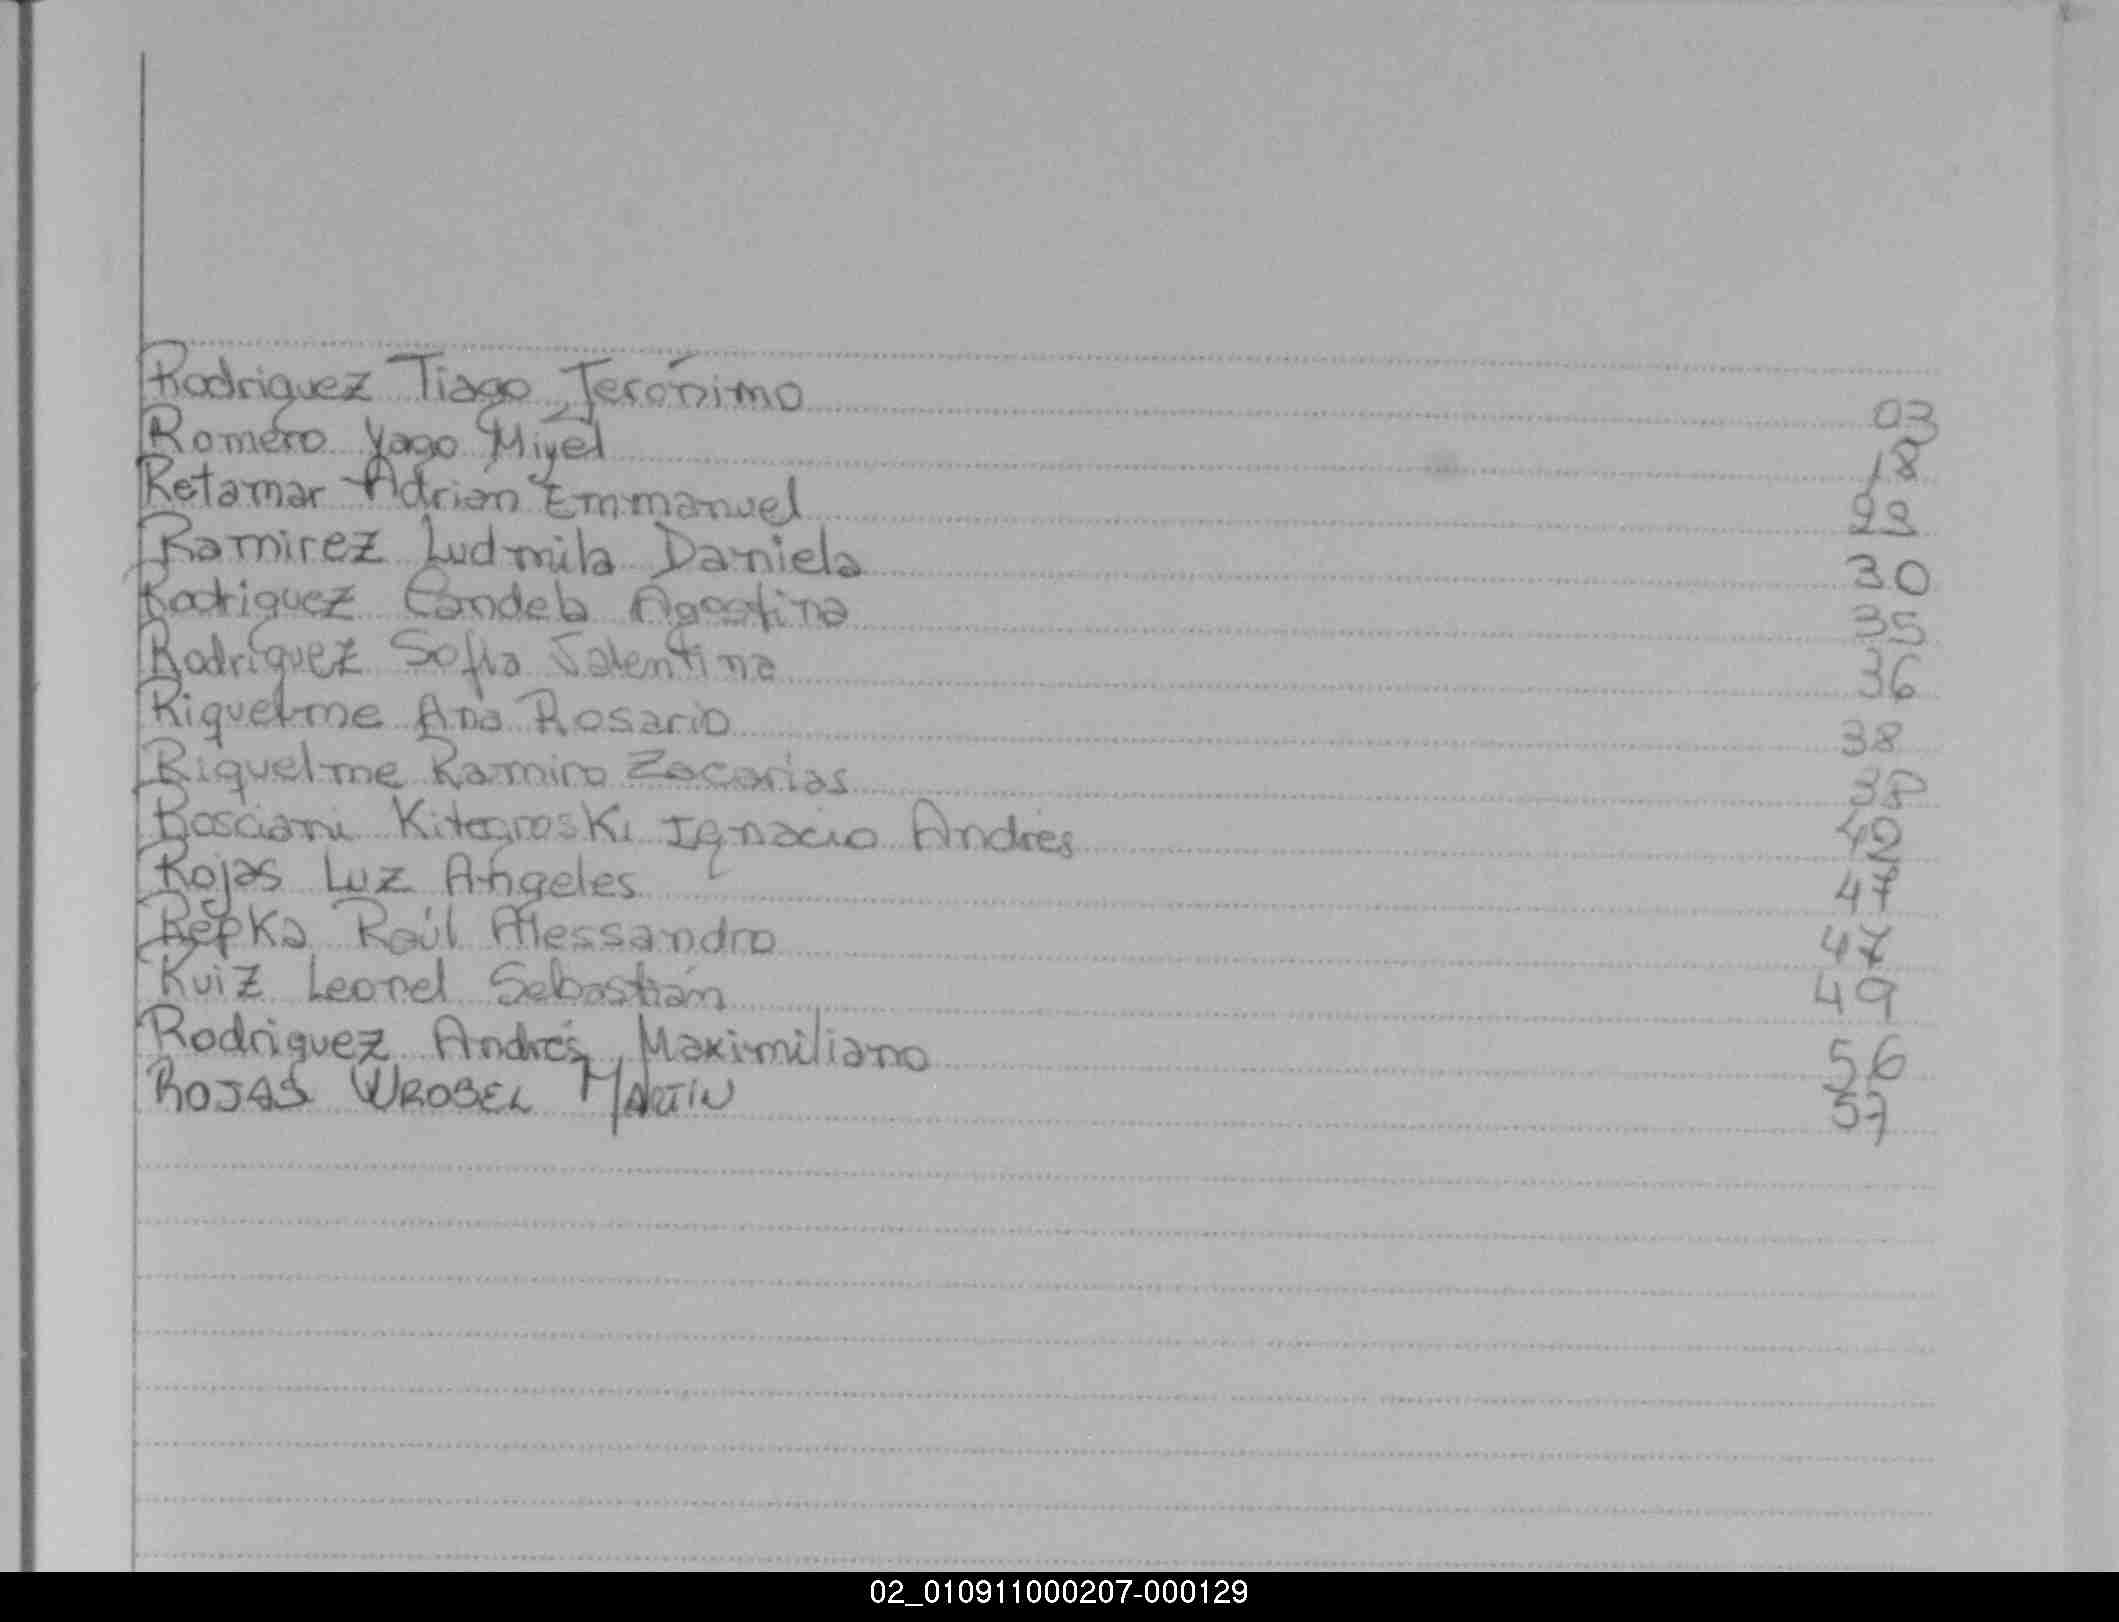 Rodriguez Tiago Jerónimo 03
Romero Yago Miyel 18
Retamar Adrián Emmanuel 29
Ramirez Ludmila Daniela 30
Rodriguez Candela Agostina 35
Rodríguez Sofia Valentina 36
Riquelme Ana Rosario 38
Riquelme Ramiro Zacarias 38
Rosciani Kitegroski Ignacio Andrés 42
Rojas Luz Angeles 47
Repka Raúl Alessandro 47
Ruiz Leonel Sebastián 49
Rodriguez Andrés Maximiliano 56
ROJAS WROBEL MARTIN 57
02_010911000207-000129